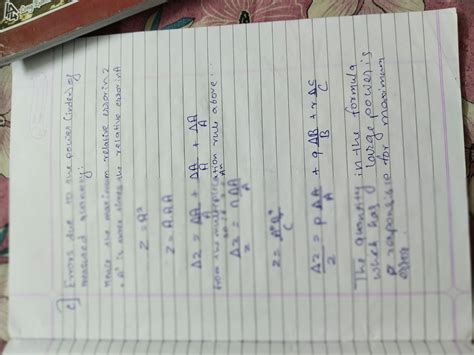 c) Errors due to the power (index) of
measured quantity.
Hence the maximum relative error in z
A³ is three times the relative error in A
Z = A³
Z = A.A.A
ΔZ = ΔA/A + ΔA/A + ΔA/A
from the multiplication rule above..
ΔZ/Z = n ΔA/A
ΔZ/Z = p ΔA/A + q ΔB/B + r ΔC/C
The quantity in the formula
which has large power is
responsible for maximum
error.